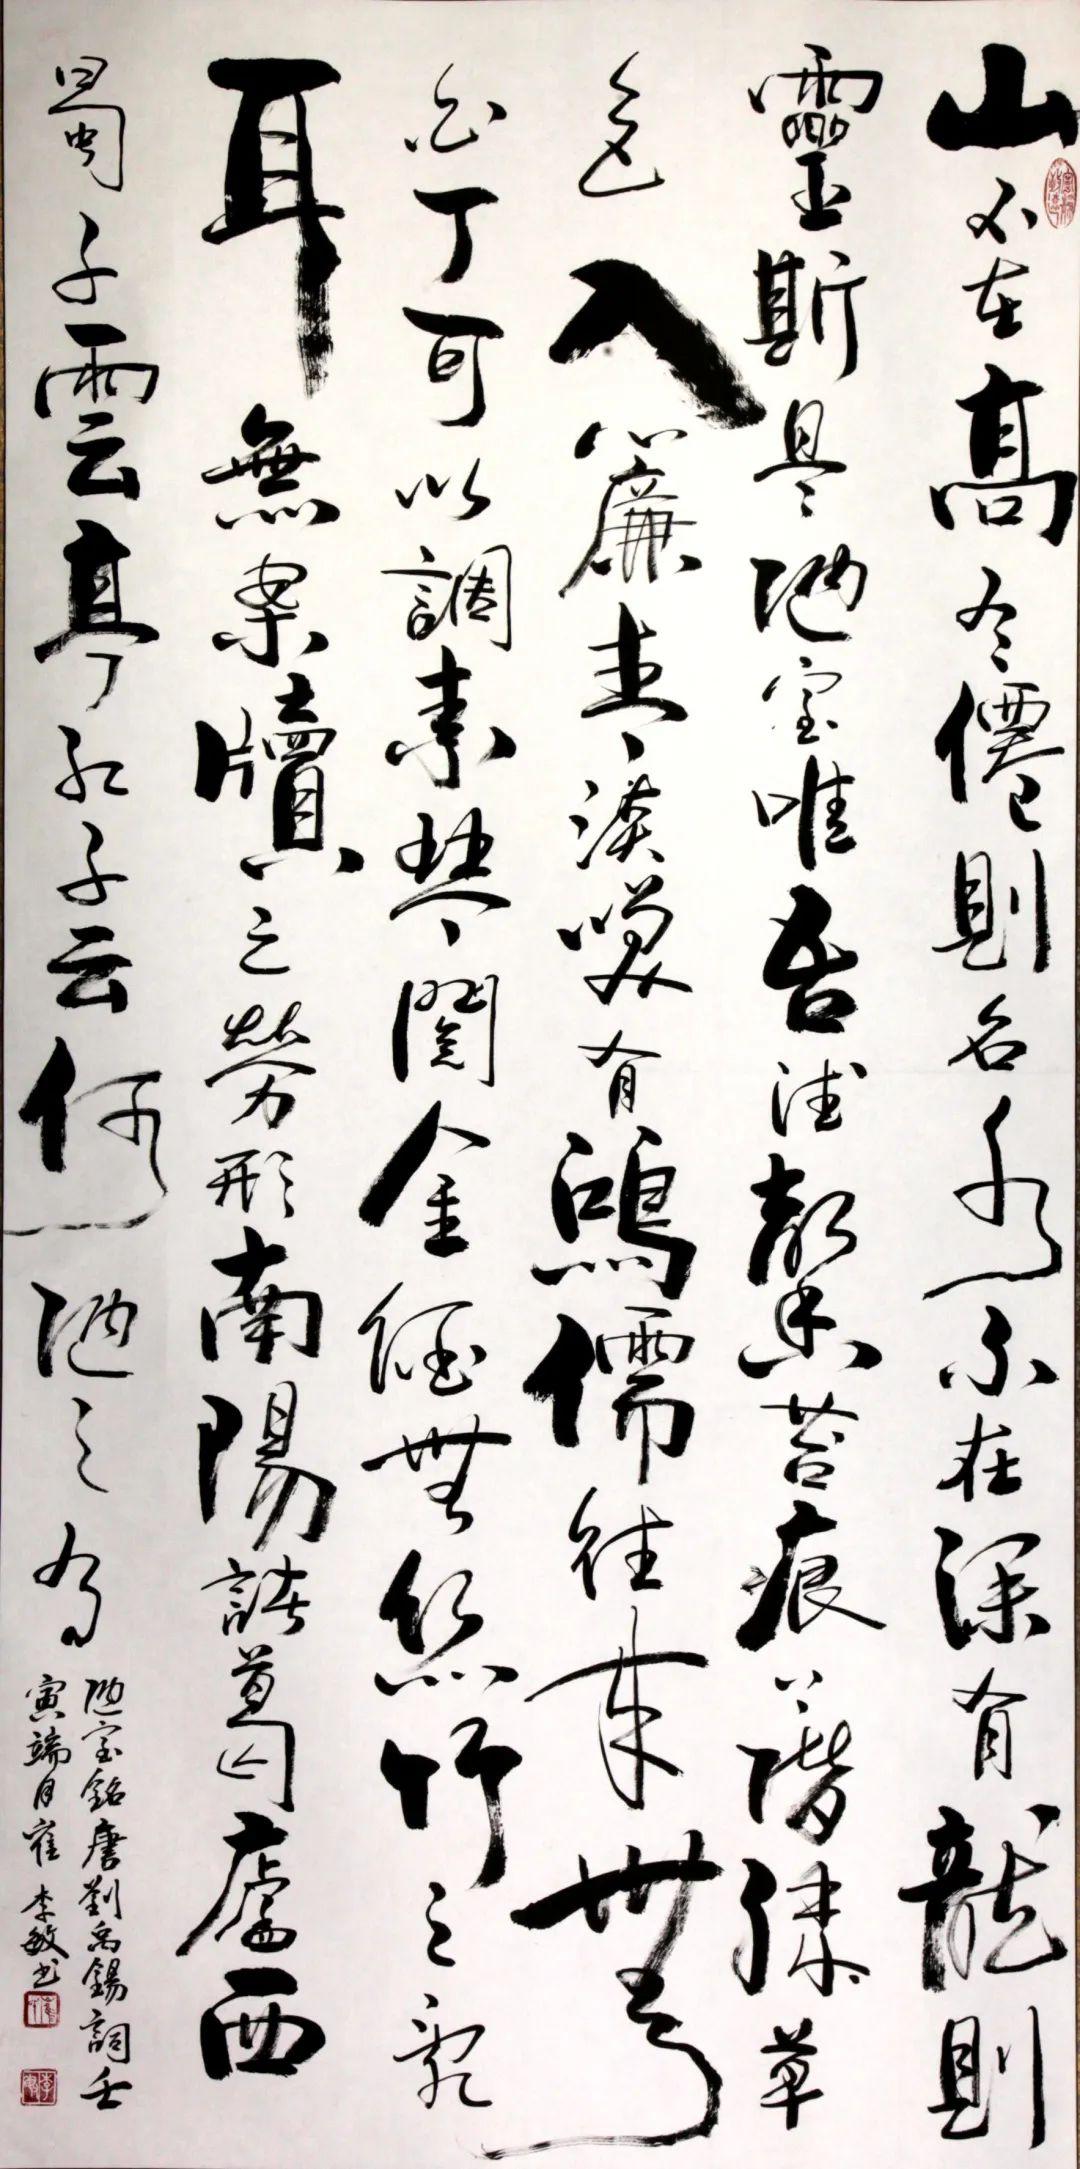 山不在高有僊則名水不在深有龍則
靈斯是陋室唯吾德馨苔痕上階綠草
色入簾青談笑有鴻儒往來無
白丁可以調素琴閱金經無絲竹之亂
耳無案牘之勞形南陽諸葛廬西
蜀子雲亭孔子云何陋之有
陋室銘唐劉禹錫詞壬
寅端月崔李敏书